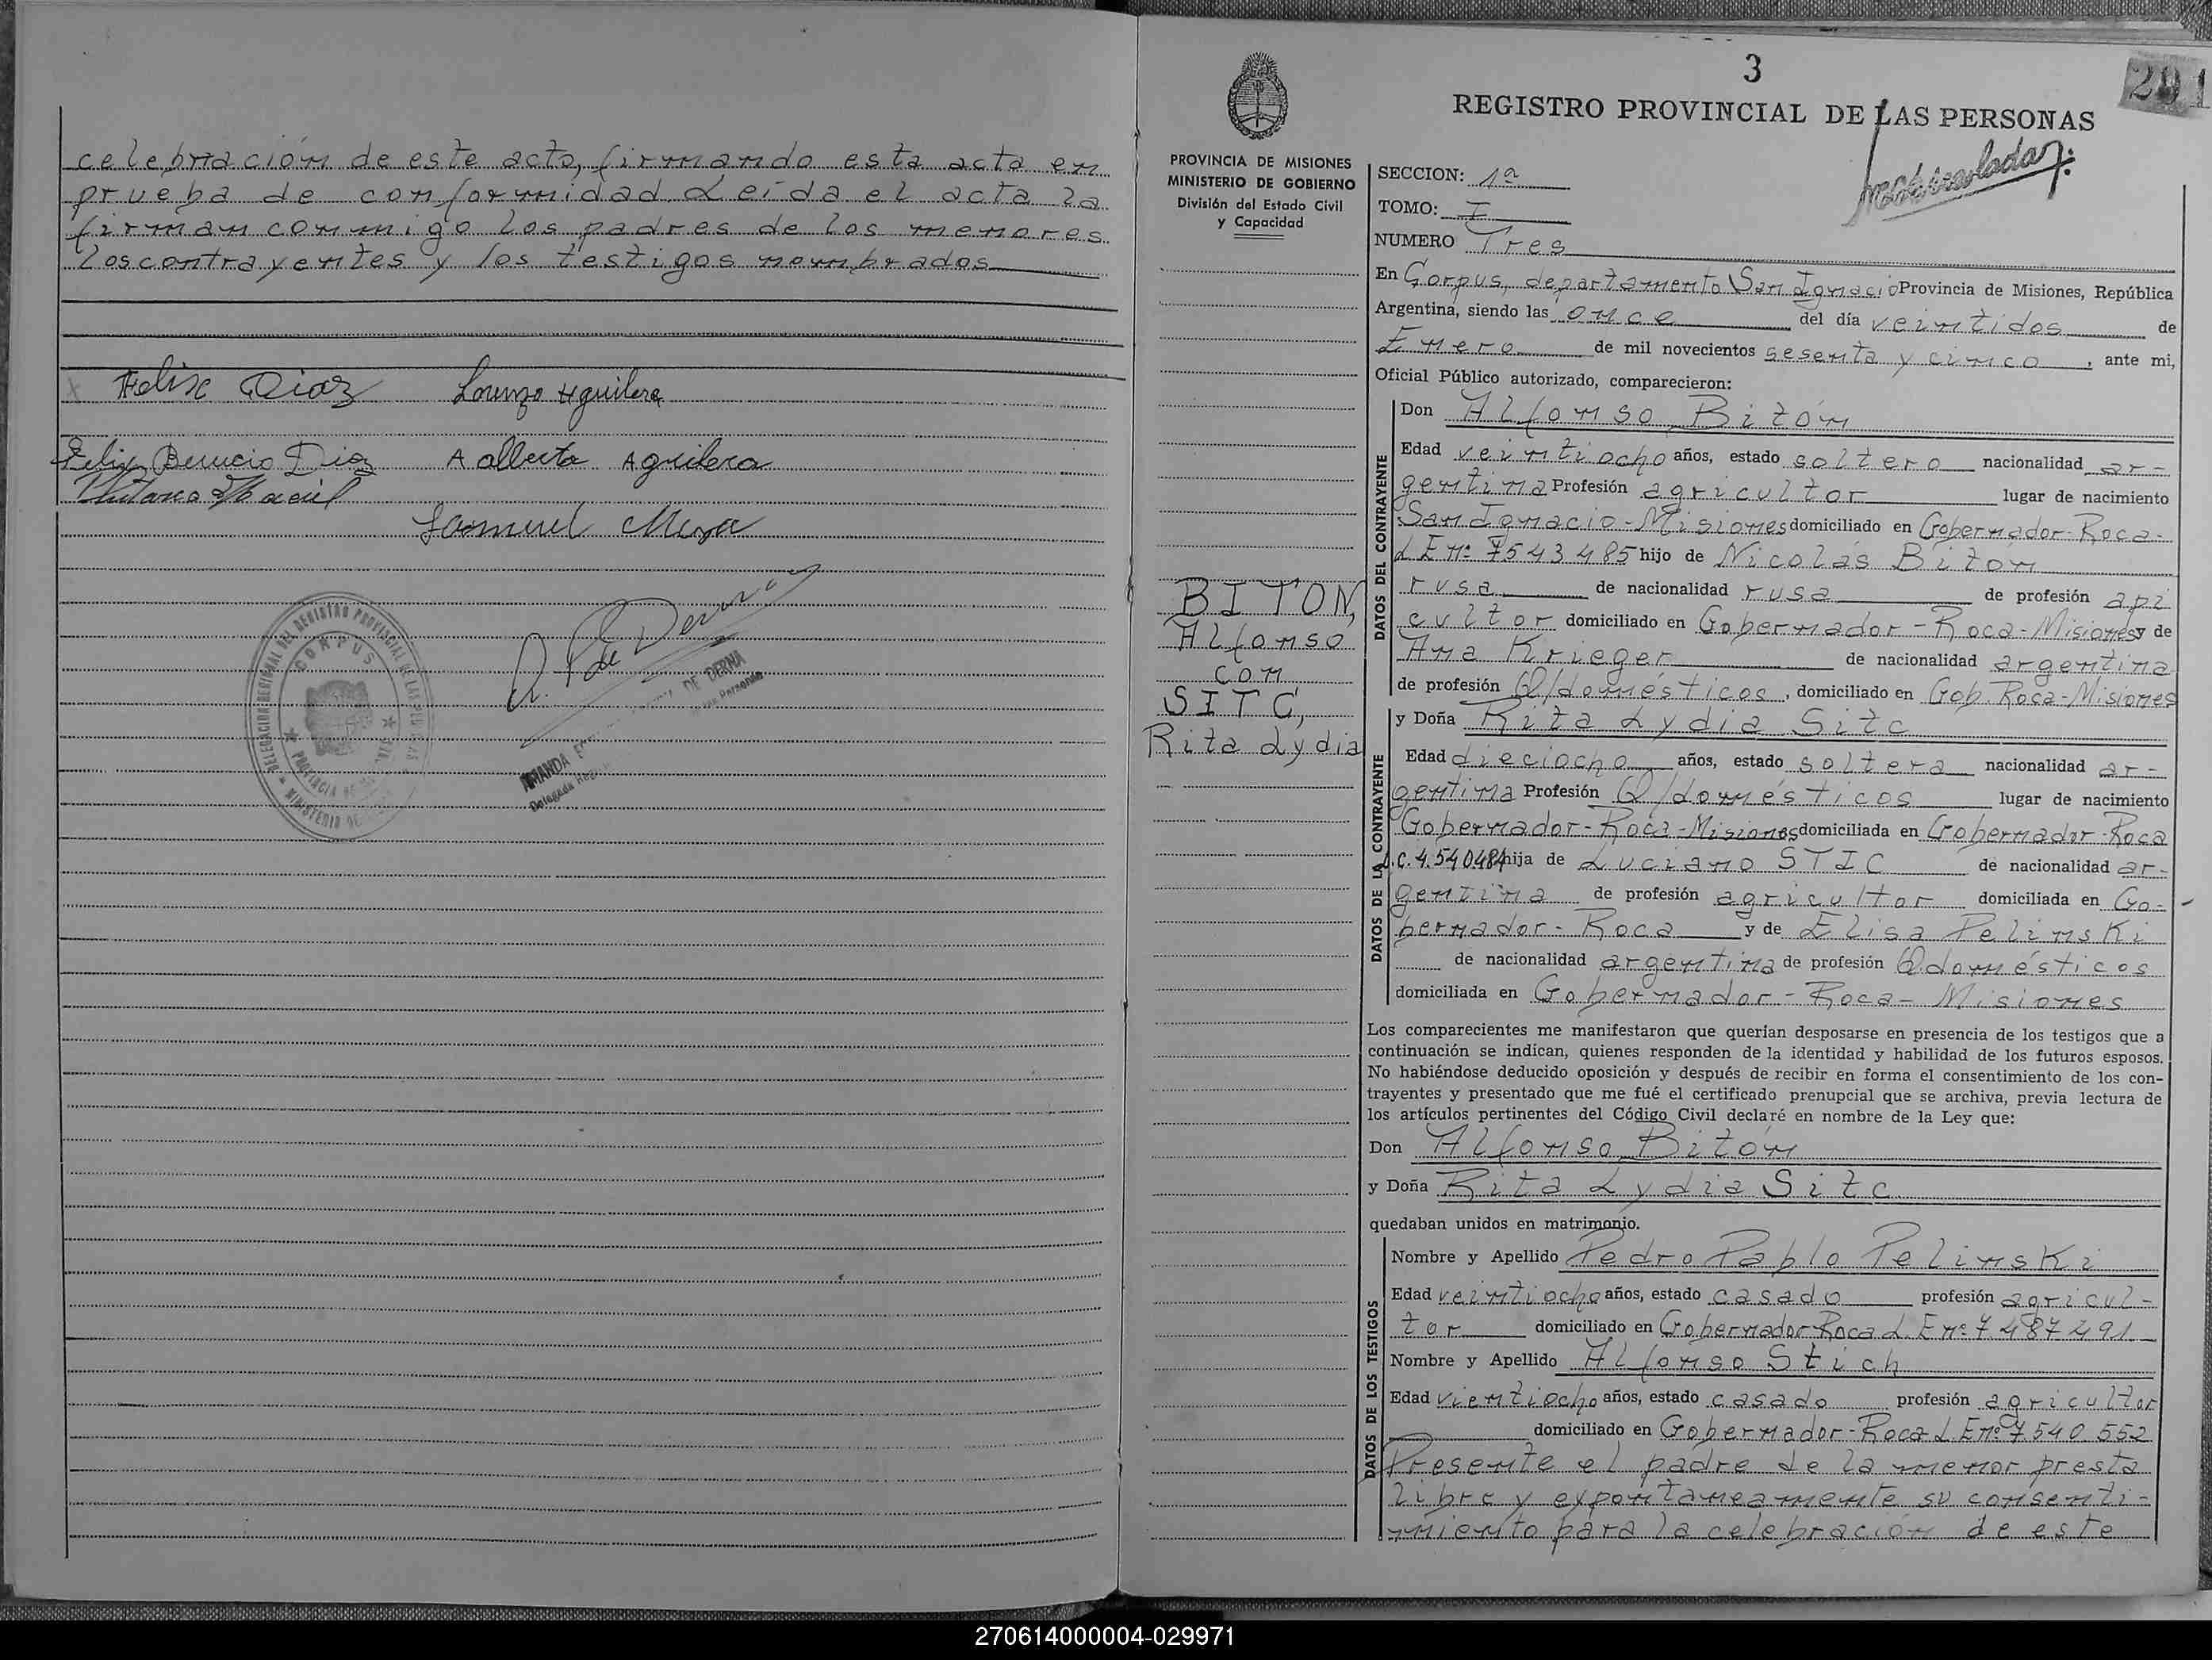 celebración de este acto, firmando esta acta en
prueba de conformidad. Leída el acta la
firman conmigo los padres de los menores
los contrayentes y los testigos nombrados
Felix Diaz Lorenzo Aguilera
Felix Diaz A alberto Aguilera
Samuel Meza
CORPUS
DE DERNA
3
291
REGISTRO PROVINCIAL DE LAS PERSONAS
PROVINCIA DE MISIONES
MINISTERIO DE GOBIERNO
División del Estado Civil
y Capacidad
SECCION: 1ª
TOMO: I
NUMERO Tres
En Corpus, departamento San Ignacio Provincia de Misiones, República
Argentina, siendo las once del día veintidos de
Enero de mil novecientos sesenta y cinco, ante mi,
Oficial Público autorizado, comparecieron:
DATOS DEL CONTRAYENTE
Don Alfonso Bitón
Edad veintiocho años, estado soltero nacionalidad ar-
gentina Profesión agricultor lugar de nacimiento
San Ignacio - Misiones domiciliado en Gobernador-Roca-
L E nº 7543485 hijo de Nicolás Bitón
rusa de nacionalidad rusa de profesión api
cultor domiciliado en Gobernador-Roca-Misiones y de
Ana Krieger de nacionalidad argentina
de profesión Q/domésticos, domiciliado en Gob. Roca-Misiones
BITON,
Alfonso
con
SITC,
Rita Lydia
DATOS DE LA CONTRAYENTE
y Doña Rita Lydia Sitc
Edad dieciocho años, estado soltera nacionalidad ar-
gentina Profesión Q/domesticos lugar de nacimiento
Gobernador-Roca-Misiones domiciliada en Gobernador-Roca
L.C. 4.540484 hija de Luciano STIC de nacionalidad ar-
gentina de profesión agricultor domiciliada en Go-
bernador-Roca y de Elisa Pelinski
de nacionalidad argentina de profesión Q.domésticos
domiciliada en Gobernador-Roca-Misiones
Los comparecientes me manifestaron que querían desposarse en presencia de los testigos que a
continuación se indican, quienes responden de la identidad y habilidad de los futuros esposos.
No habiéndose deducido oposición y después de recibir en forma el consentimiento de los con-
trayentes y presentado que me fué el certificado prenupcial que se archiva, previa lectura de
los artículos pertinentes del Código Civil declaré en nombre de la Ley que:
Don Alfonso Bitón
y Doña Rita Lydia Sitc
quedaban unidos en matrimonio.
DATOS DE LOS TESTIGOS
Nombre y Apellido Pedro Pablo Pelinski
Edad veintiocho años, estado casado profesión agricul-
tor domiciliado en Gobernador Roca L.E nº 7487491
Nombre y Apellido Alfonso Stich
Edad vientiocho años, estado casado profesión agricultor
domiciliado en Gobernador-Roca L E nº 7.540.552
Presente el padre de la menor presta
libre y expontaneamente su consenti-
miento para la celebración de este
270614000004-029971